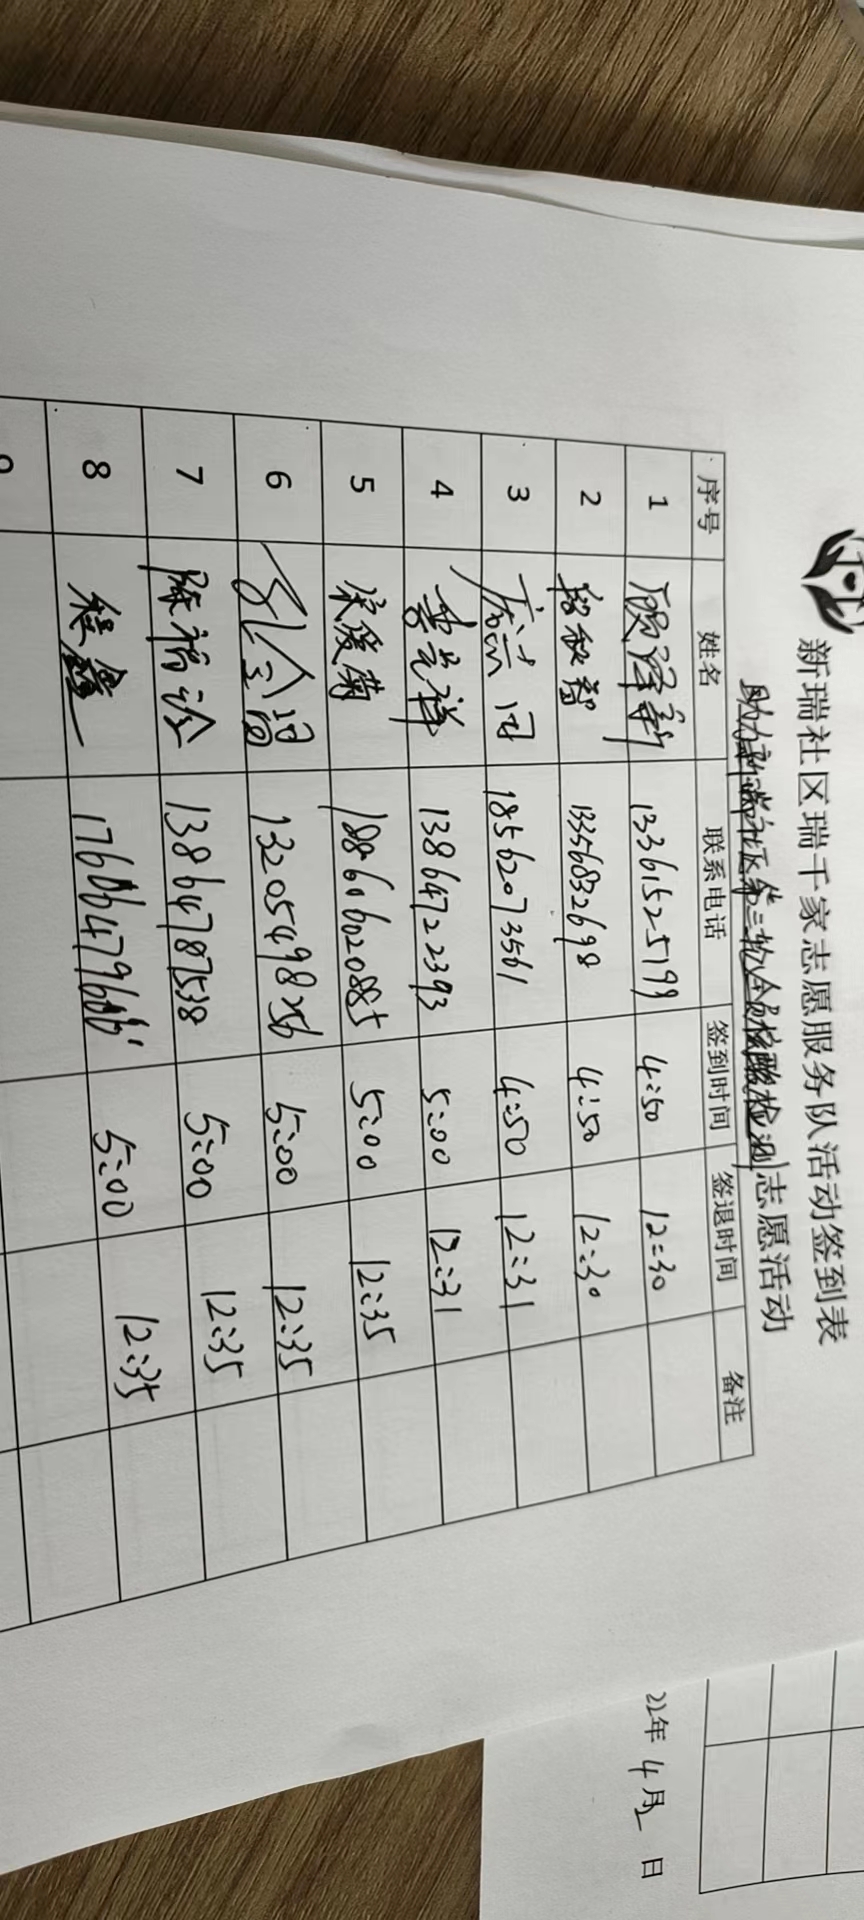 新瑞社区瑞千家志愿服务队活动签到表
助力新瑞社区第三轮全员核酸检测志愿活动
序号 姓名 联系电话 签到时间 签退时间 备注
1 顾泽新 13361525199 4:50 12:30
2 13356832698 4:50 12:30
3 18562073561 4:50 12:31
4 13864722393 5:00 12:31
5 宋爱菊 18860 5:00 12:35
6 13205498256 5:00 12:35
7 陈福玲 13864787538 5:00 12:35
8 程鑫 5:00 12:35
9
22年4月2日